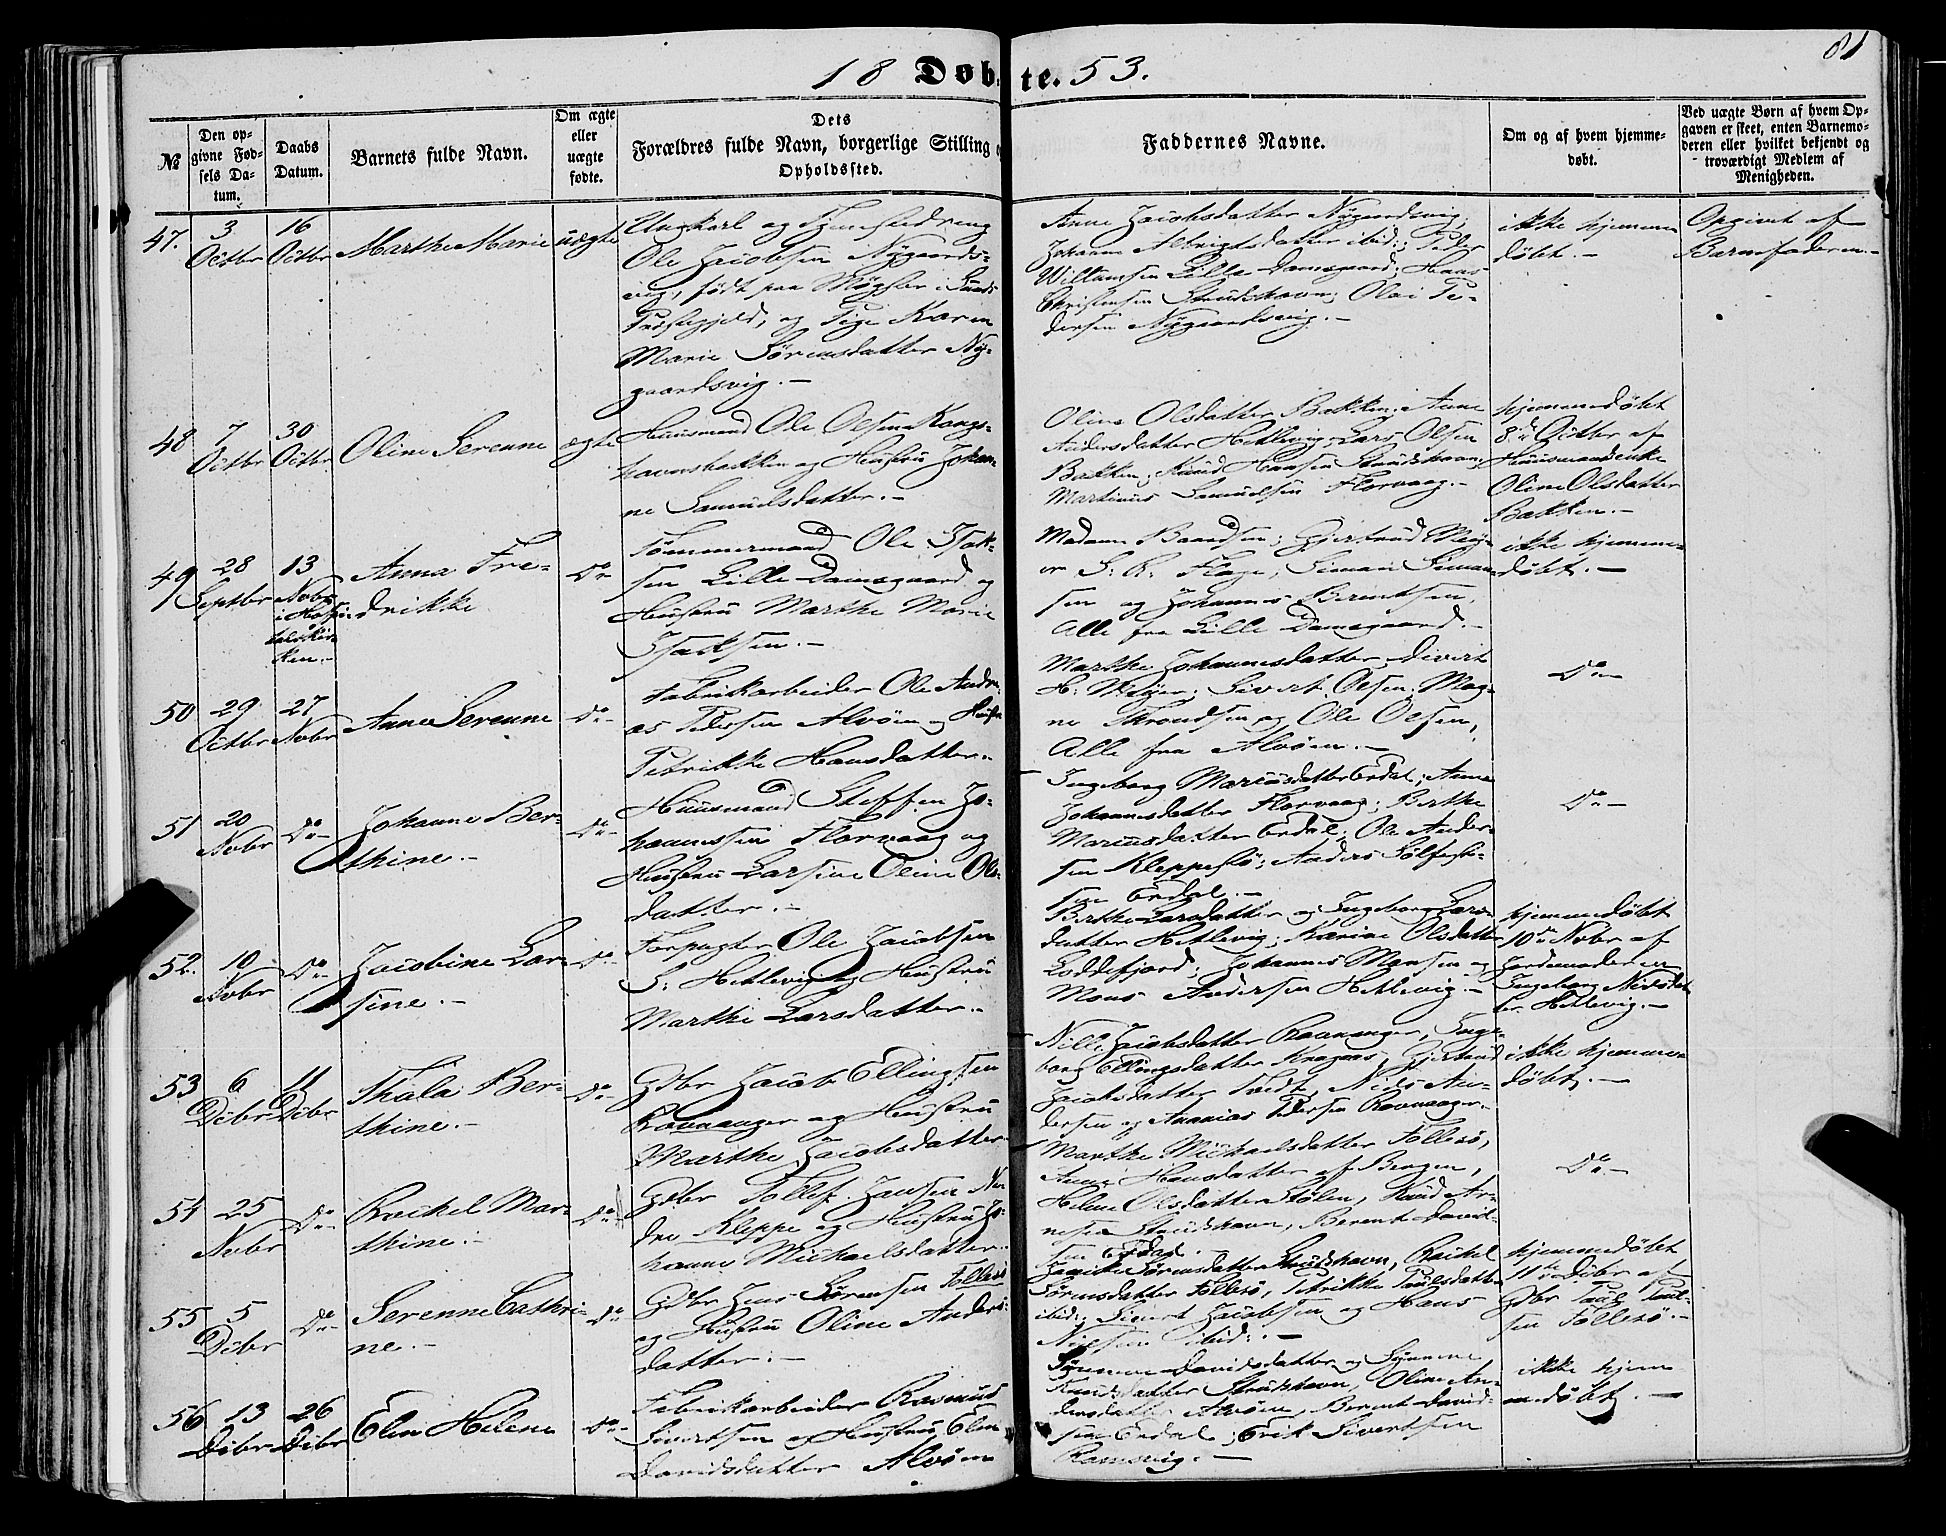 81
18 Døbte. 53.
№
Den opgivne Fødsels Datum.
Daabs Datum.
Barnets fulde Navn.
Om ægte eller uægte fødte.
Dets Forældres fulde Navn, borgerlige Stilling Opholdssted.
Faddernes Navne.
Om og af hvem hjemmedøbt.
Ved uægte Børn af hvem Opgaven er skeet, enten Barnemoderen eller hvilket bekjendt og troværdigt Medlem af Menigheden.
47.
3 Octbr
16 Octbr
Marthe Marie
uægte
Ungkarl og Tjenestedreng
Ole Jacobsen Nÿgaards-
vig, født paa Møgster i Sunds
Præstegjeld, og Pige Karen
Marie Sørensdatter Nÿ-
gaardsvig.-
Anne Jacobsdatter Nÿgaardsvig;
Johanne Albrigtsdatter ibid:; Peder
Willumsen Lille Damsgaard; Hans
Christensen Strudshavn; Olai Pe-
dersen Nÿgaardsvig.-
ikke hjemme
døbt.-
Opgivet af
Barnefaderen.-
48
7 Octbr
30 Octbr
Oline Serenne
ægte
Huusmand Ole Olsen Kongs-
havnsbakken og Hustru Johan-
ne Samuelsdatter.-
Oline Olsdatter Bakken; Anne
Andersdatter Hetlevig; Lars Olsen
Bakken; Knud Hansen Strudshavn;
Martinus Samuelsen Florvaag.-
hjemmedøbt
8de Octbr af
Huusmandenke
Oline Olsdatter
Bakken.-
49
28 Septbr
13 Novbr
i Hospi-
talskir-
ken.-
Anna Fre-
drikke
Do-
Tømmermand Ole Isak-
sen Lille Damsgaard og
Hustru Marthe Marie
Isacksen.-
Madame Baardsen; Gjertrud Meÿ-
er S. R. Flage; Simon Simon-
sen og Johannes Berentsen,
Alle fra Lille Damsgaard.-
ikke hjemme-
døbt.-
50
29 Octbr
27 Novbr
Anne Serenne
Do-
Fabrikarbeider Ole Andre-
as Pedersen Alvøen og Hustru
Petrikke Hansdatter.-
Marthe Johannesdatter, Sivert
H. Meÿer; Sivert Olsen; Mag-
ne Throndsen og Ole Olsen,
Alle fra Alvøen.-
Do-
51
20 Novbr
Do-
Johanne Ber-
thine.-
Do-
Huusmand Steffen Jo-
hannessen Florvaag og
Hustru Larsine Oline Ols-
datter.-
Ingeborg Mariusdatter Erdal; Anna
Johannesdatter Florvaag; Berthe
Mariusdatter Erdal; Ole Ander-
sen Kleppestø; Anders Sølfest-
sen Erdal.-
Do-
52.
10 Novbr
Do-
Jacobine Lar-
sine.-
Do-
Forpagter Ole Jacobsen
S: Hetlevig og Hustru
Marthe Larsdatter.-
Berthe Larsdatter og Ingeborg Lars-
datter Hetlevig; Karine Olsdatter
Loddefjord; Johannes Monsen og
Mons Andersen Hetlevig.-
hjemmedøbt
10de Novbr af
Jordemoderen
Ingeborg Nilsdat-
ter Hetlevig.-
53
6 Dcbr
11 Dcbr
Thala Ber-
thine.-
Do-
Gdbr Jacob Ellingsen
Ravnanger og Hustru
Marthe Jacobsdatter
Nille Jacobsdatter Ravnanger, Inge-
borg Ellingsdatter Kragaas, Gjertrud
Jacobsdatter Tvedt, Niels An-
dersen og Ananias Pedersen Ravnanger.
ikke hjemme-
døbt.-
54
25 Novbr
Do-
Rachel Mar-
thine.-
Do-
Gdbr Tollef Jansen Ne-
dre Kleppe og Hustru Jo-
hanne Michaelsdatter.
Marthe Michaelsdatter Follesø,
Anne Hansdatter af Bergen,
Helene Olsdatter Stølen, Knud Ar-
nesen Strudshavn, Berent David-
sen Erdal.
Do-
55
5 Dcbr
Do-
Serenne Cathri-
ne.-
Do
Gdbr Jens Sørensen Follesø
og Hustru Oline Anders-
datter.-
Sørensdatter Strudshavn, Rachel
Sørensdatter Follesø, Petrikke Paulsdatter
ibid:; Sivert Jacobsen og Hans
Nielsen ibid:.-
hjemmedøbt
11te Dcbr af
Gdbr Paul Paul-
sen Follesø.-
56
13 Dcbr
26 Dcbr
Elen Helene
Do-
Fabrikarbeider Rasmus
Sivertsen og Hustru Elen
Davidsdatter Alvøen
Davidsdatter og Synneve
Knudsdatter Strudshavn, Oline An-
dersdatter Alvøen, Berent David-
sen Erdal; Erik Sivertsen
Ramsvig.-
ikke hjem-
medøbt.-